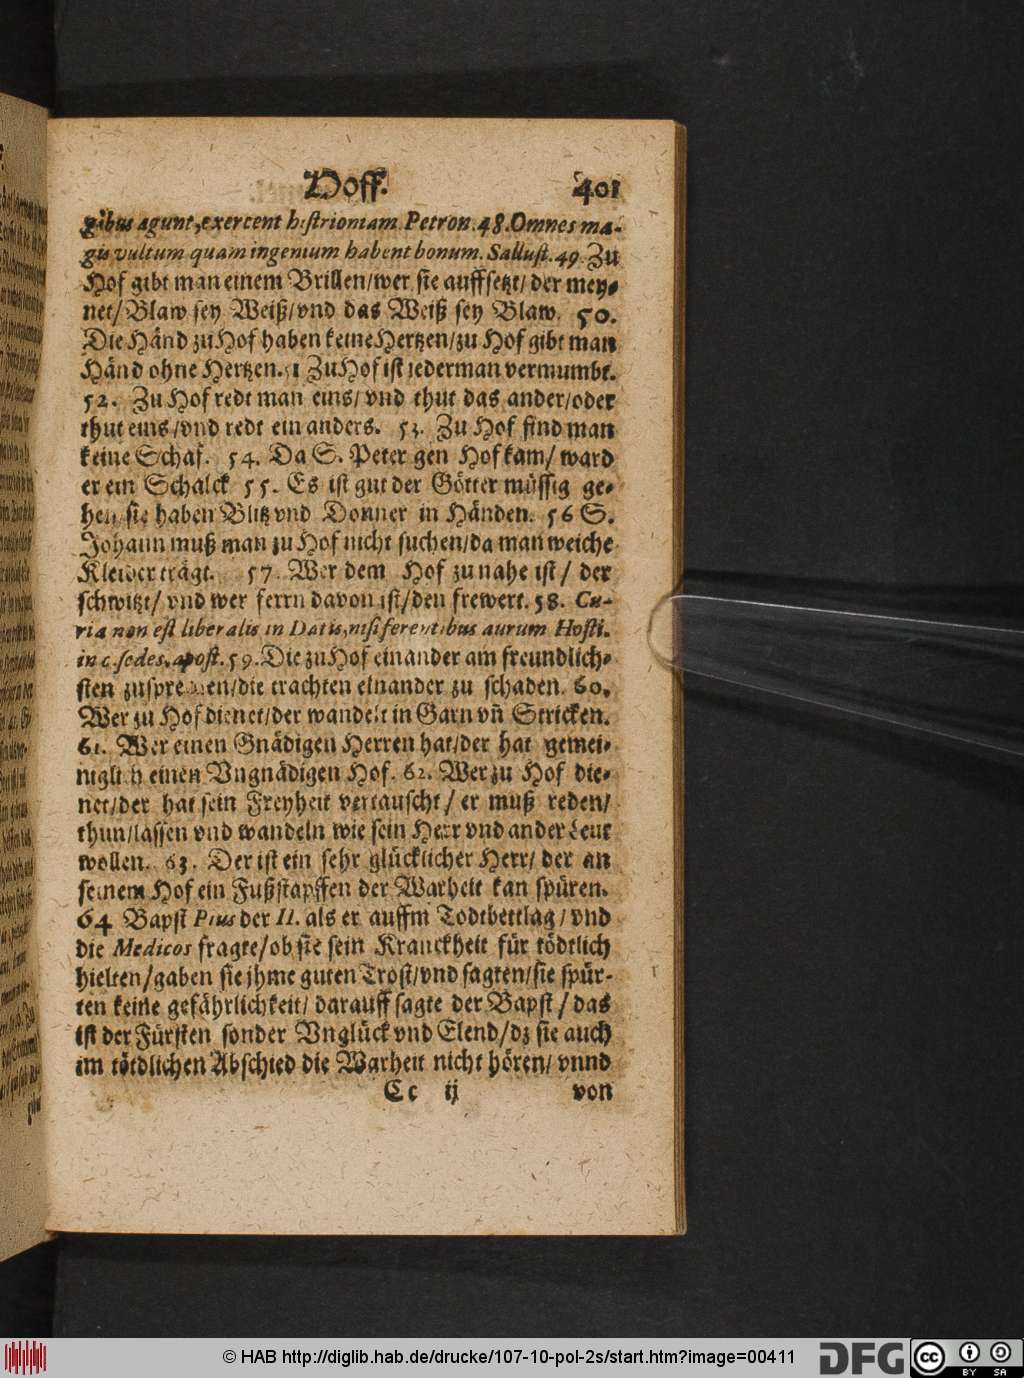 Hoff. 401
gibus agunt, exercent histrioniam. Petron. 48. Omnes ma-
gis vultum quam ingenium habent bonum. Sallust. 49. Zu
Hof gibt man einem Brillen/wer sie auffsetzt/ der mey-
net/ Blaw sey Weiß/vnd das Weiß sey Blaw. 50.
Die Händ zu Hof haben keine Hertzen/zu Hof gibt man
Händ ohne Hertzen. 51 Zu Hof ist jederman vermumbt.
52. Zu Hof redt man eins/ vnd thut das ander/oder
thut eins/vnd redt ein anders. 53. Zu Hof find man
keine Schaf. 54. Da S. Peter gen Hof kam/ ward
er ein Schalck 55. Es ist gut der Götter müssig ge-
hen/sie haben Blitz vnd Donner in Händen. 56 S.
Johann muß man zu Hof nicht suchen/da man weiche
Kleider trägt. 57. Wer dem Hof zu nahe ist/ der
schwitzt/ vnd wer ferrn davon ist/den frewert. 58. Cu-
ria non est liberalis in Datis, nisi ferentibus aurum Hosti.
in c. sedes. apost. 59. Die zu Hof einander am freundlich-
sten zusprechen/die trachten einander zu schaden. 60.
Wer zu Hof dienet/der wandelt in Garn vñ Stricken.
61. Wer einen Gnädigen Herren hat/der hat gemei-
niglich einen Vngnädigen Hof. 62. Wer zu Hof die-
net/der hat sein Freyheit vertauscht/ er muß reden/
thun/lassen vnd wandeln wie sein Herr vnd ander Leut
wollen. 63. Der ist ein sehr glücklicher Herr/ der an
seinem Hof ein Fußstapffen der Warheit kan spüren.
64 Bapst Pius der II. als er auffm Todtbettlag/vnd
die Medicos fragte/ob sie sein Kranckheit für tödtlich
hielten/gaben sie jhme guten Trost/vnd sagten/sie spür-
ten keine gefährlichkeit/ darauff sagte der Bapst/ das
ist der Fürsten sonder Vnglück vnd Elend/dz sie auch
im tötdlichen Abschied die Warheit nicht hören/ vnnd
Cc ij von
© HAB http://diglib.hab.de/drucke/107-10-pol-2s/start.htm?image=00411
DFG
cc BY SA